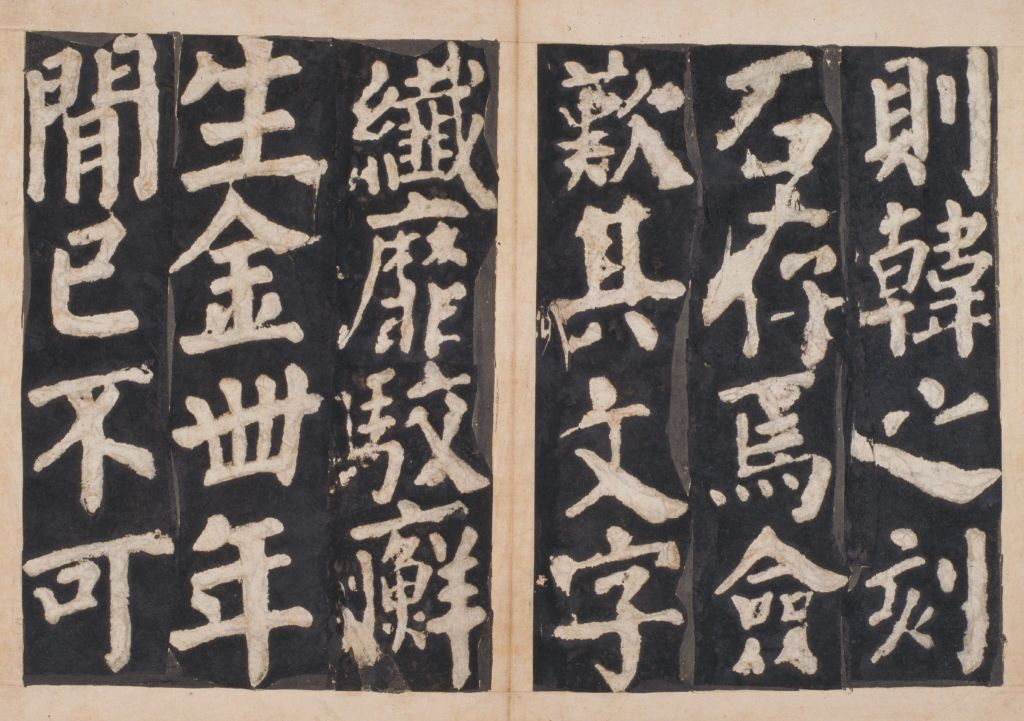 則韓之刻
石存焉僉
歎其文字
纖靡駮癬
生金卌年
閒已不可